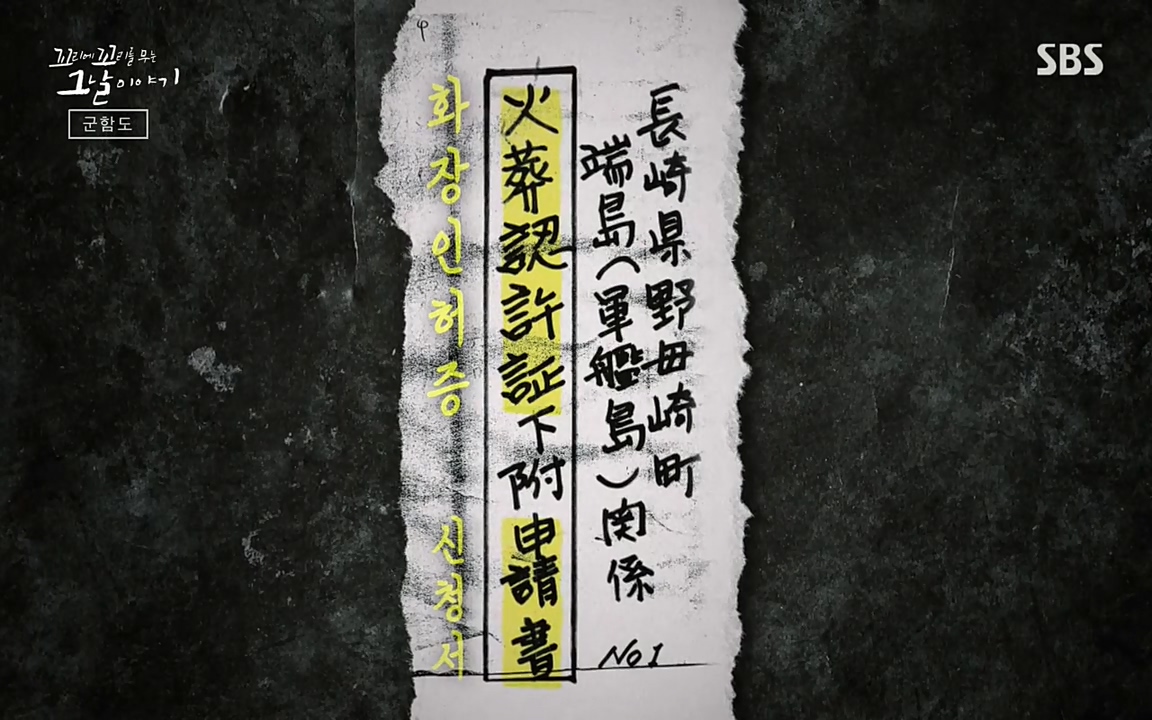 꼬리에 꼬리를 무는
그날 이야기
군함도
SBS
長崎県野母崎町
端島(軍艦島)関係
No 1
火葬認許証下附申請書
화장인허증 신청서